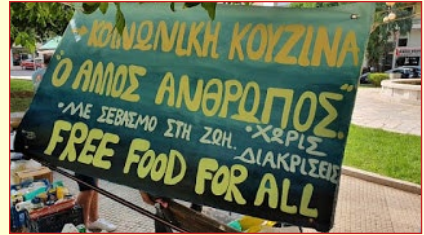 ΚΟΙΝΩΝΙΚΗ ΚΟΥΖΙΝΑ
"Ο ΑΛΛΟΣ ΑΝΘΡΩΠΟΣ"
·ΜΕ ΣΕΒΑΣΜΟ ΣΤΗ ΖΩΗ. ·ΧΩΡΙΣ
ΔΙΑΚΡΙΣΕΙΣ
FREE FOOD FOR ALL